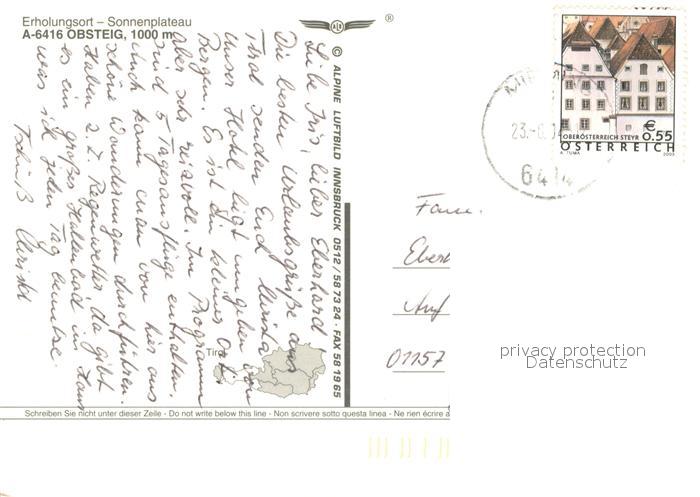 Erholungsort – Sonnenplateau
A-6416 OBSTEIG, 1000 m
®
© ALPINE LUFTBILD INNSBRUCK 0512 / 58 73 24 · FAX 58 19 65
Liebe Iris, lieber Eberhard
Die besten Urlaubsgrüße aus
Tirol senden Euch
Unser Hotel liegt umgeben von
Bergen. Es ist ein kleiner Ort
aber sehr reizvoll. Im Programm
sind 5 Tagesausflüge enthalten.
Auch kann man von hier aus
schöne Wanderungen durchführen.
Haben z. Z. Regenwetter, da gibt
es ein großes Hallenbad im Haus
was ich jeden Tag benutze.
Tschüß Christel
Tirol
Schreiben Sie nicht unter dieser Zeile - Do not write below this line - Non scrivere sotto questa linea - Ne rien écrire a
6414
OBERÖSTERREICH STEYR
€
0.55
ÖSTERREICH
A. TUMA
2003
Fam.
Eber
Auf
01157
privacy protection
Datenschutz